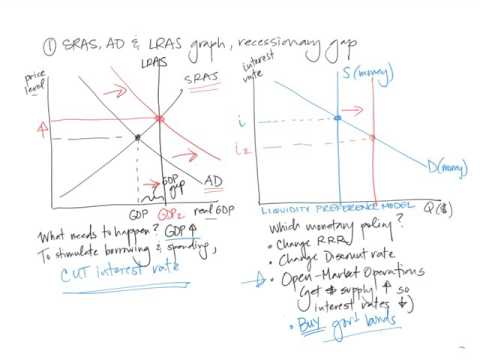 ① SRAS, AD & LRAS graph, recessionary gap
price level
LRAS
SRAS
GDP gap
AD
GDP GDP2 real GDP
What needs to happen? GDP ↑
To stimulate borrowing & spending,
CUT interest rate
interest rate
S (money)
i
i2
D (money)
LIQUIDITY PREFERENCE MODEL Q($)
Which monetary policy?
• Change RRR
• Change Discount rate
• Open-Market Operations
(get $ supply ↑ so
interest rates ↓)
• Buy gov't bonds